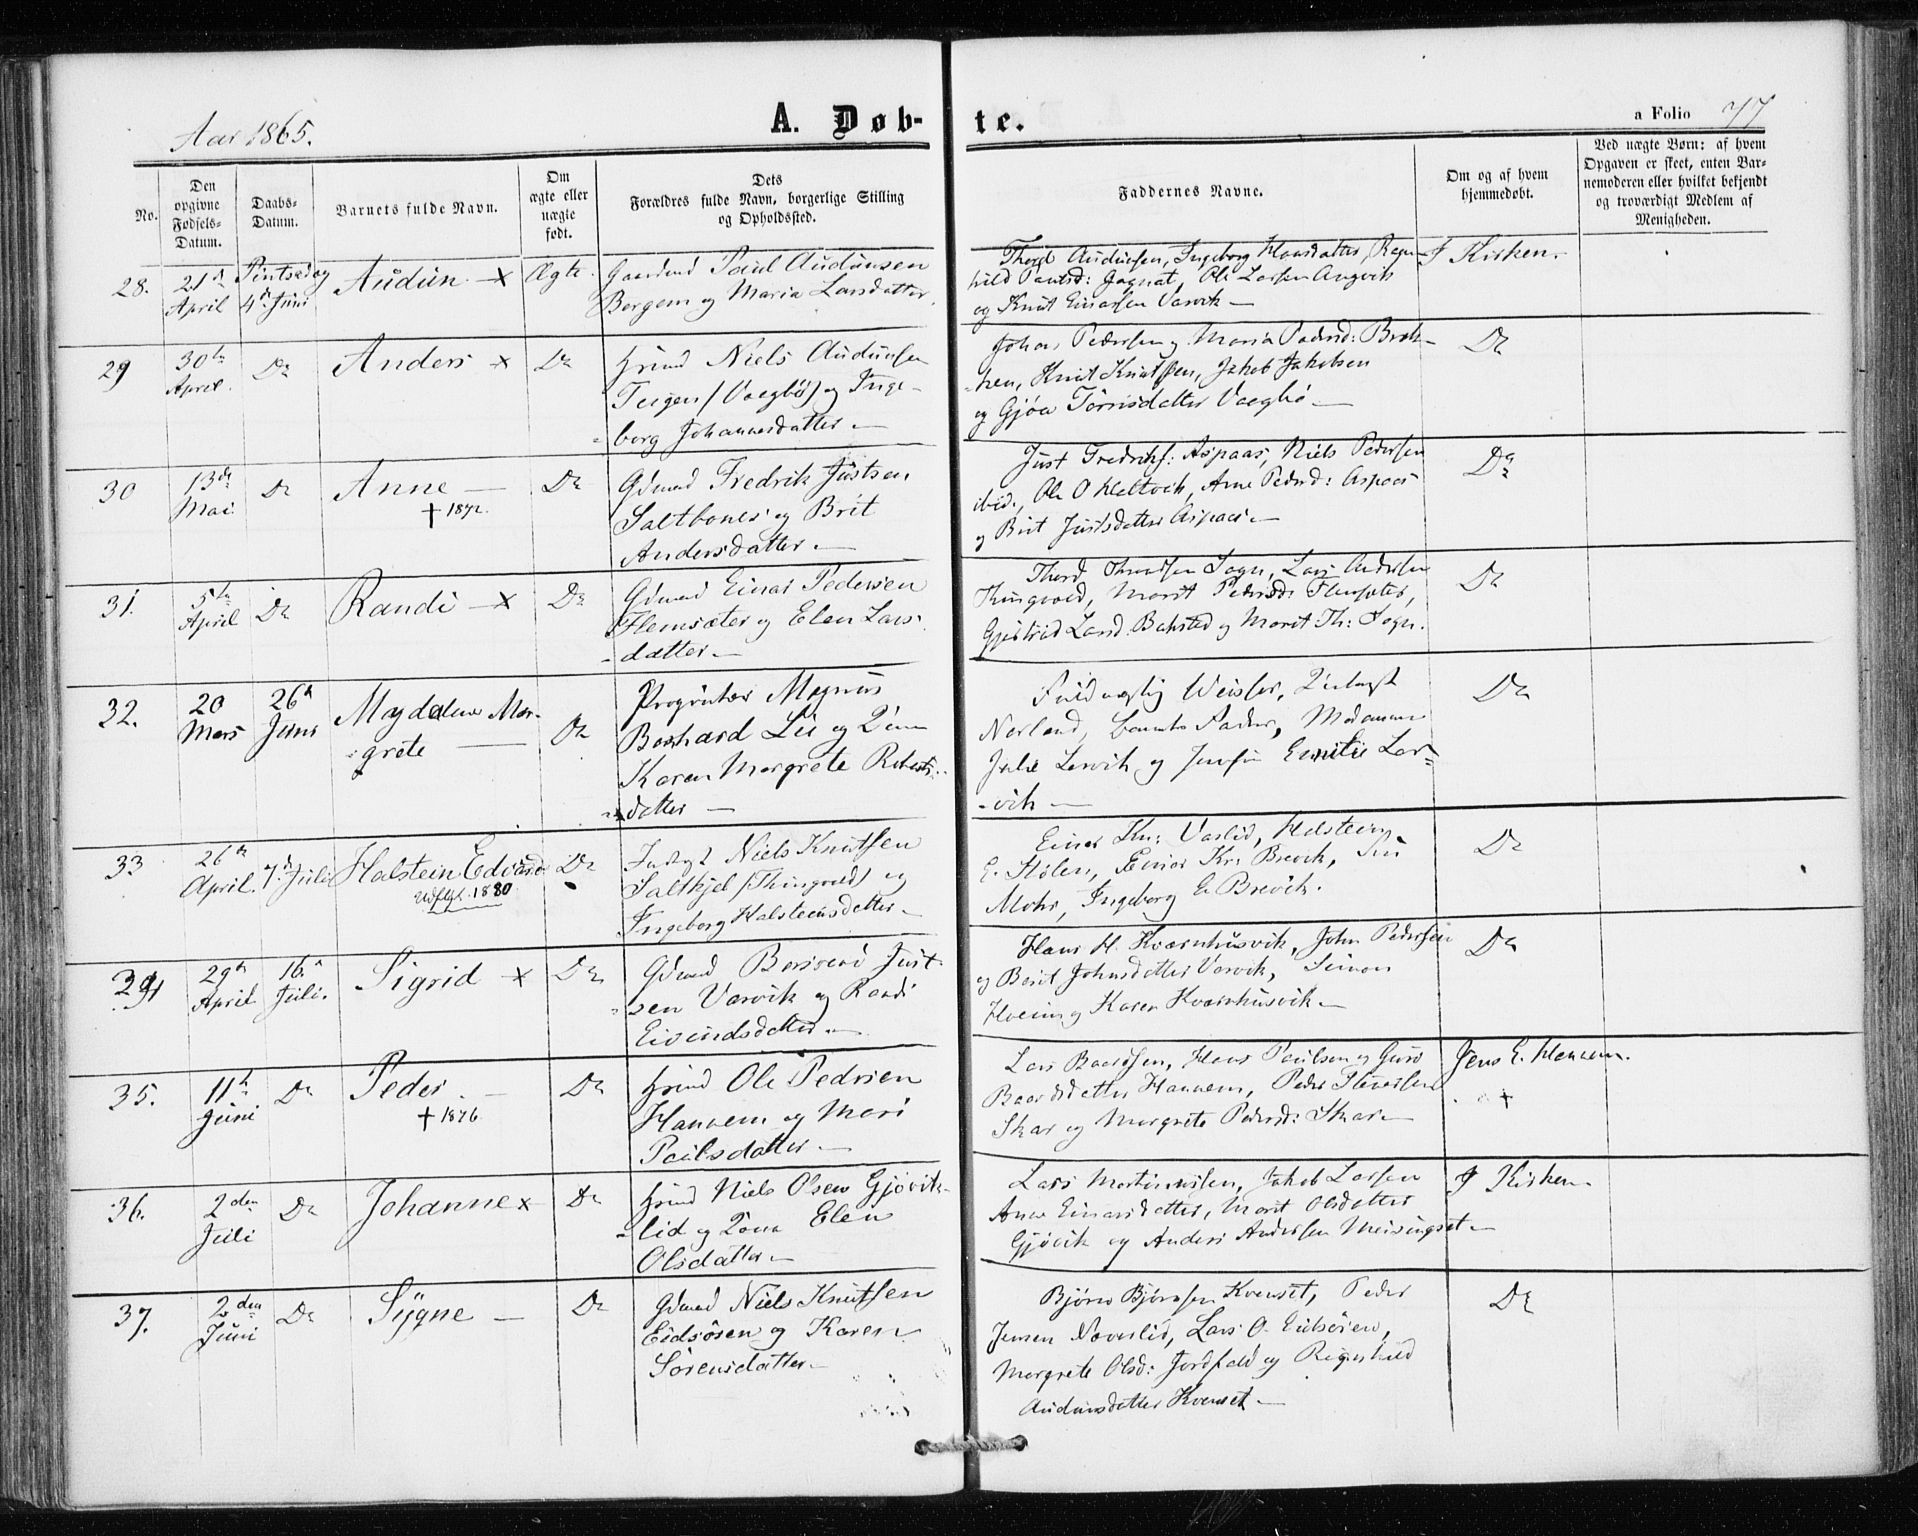 Aar 1865.
A. Døb-
te.
a Folio 77
No.
Den opgivne Fødsels-Datum.
Daabs-Datum.
Barnets fulde Navn.
Om ægte eller uægte født.
Dets Forældres fulde Navn, borgerlige Stilling og Opholdssted.
Faddernes Navne.
Om og af hvem hjemmedøbt.
Ved uægte Børn: af hvem Opgaven er skeet, enten Barnemoderen eller hvilket bekjendt og troværdigt Medlem af Menigheden.
28.
21de April
Pintsedag 4de Juni
Audun x
Ægte
Gaardmd Paul Audunsen
Bergem og Maria Larsdatter.
Thord Audunsen, Ingeborg Hansdatter, Ragn-
hild Paulsd: Jognat, Ole Larsen Angvik
og Knut Einarsen Varvik —
I Kirken.
29
30te April.
Do
Anders x
Do
Huusmd Niels Audunsen
Teigen (Vaagbø) og Inge-
borg Johannesdatter —
Johan Pedersen og Maria Pedersd: Brek-
ken, Knut Knutsen, Jakob Jakobsen
og Gjøa Tørrisdatter Vaagbø —
Do
30
13de Mai
Do
Anne —
† 1872.
Do
Gdmand Fredrik Justsen
Saltbones og Brit
Andersdatter. —
Just Fredriks: Aspaas, Niels Pedersen
ibid:, Ole O Heltvik, Arne Pedersd: Aspaas
og Brit Justsdatter Aspaas. —
Do
31.
5te April
Do
Randi — x
Do
Gdmand Einar Pedersen
Flemsæter og Elen Lars-
datter. —
Thord Thordsen Sogn, Lars Andersen
Thingvold, Marit Pedersd: Flemsæter,
Gjertrud Larsd. Baksted og Marit Th: Sogn.
Do
32.
20 Mars
26de Juni
Magdalene Mar-
grete —
Do
Proprietær Magnus
Boshard Lie og
Karen Margrete Roberts-
datter —
Weisser,
Norland, barnets Fader, Madamme
Julie Lervik og Jomfru Emilie Ler-
vik —
Do
33
26de April.
7de Juli
Halstein Edvard
Udflyt. 1880
Do
Niels Knutsen
Saltkjel (Thingvold) og
Ingeborg Halsteinsdatter —
Einar Kn: Varlid, Halstein
E. Stølen, Einar Kr: Brevik,
Mohr, Ingeborg E Brevik.
Do
34
29de April
16de Juli.
Sigrid x
Do
Gdmand Just-
sen Varvik og Randi
Eivindsdatter —
Hans H. Kvarnhusvik, John Pedersen
og Berit Johnsdatter Varvik, Simon
og Karen Kvarnhusvik —
Do
35.
11te Juni
Do
Peder. —
† 1876
Do
Huusmd Ole Pedersen
Hannem og Mari
Paulsdatter —
Lars Baardsen, Hans Paulsen og Guro
Baardsdatter Hannem, Peder
Skar og Margrete Pedersd: Skar —
Jens E. Hannem.
36.
2den Juli
Do
Johanne x
Do
Huusmd Niels Olsen Gjøvik-
lid og Kona Elen
Olsdatter —
Lars Martinusen, Jakob Larsen
Anne Einarsdatter, Marit Olsdatter
Gjøvik og Anders Andersen Meisingset —
I Kirken
37.
2den Juni
Do
Sygne —
Do
Gdmand Niels Knutsen
Eidsøren og Karen
Sørensdatter —
Bjørn Bjørnsen Kvenset, Peder
Jensen Naverlid, Lars O. Eidsøren,
Margrete Olsd: Jordfald og Ragnhild
Audunsdatter Kvenset —
Do